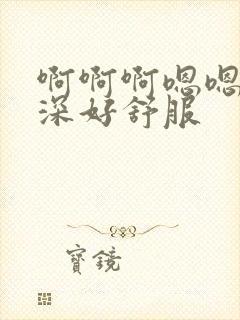 啊啊啊嗯嗯
深好舒服
寳鏡